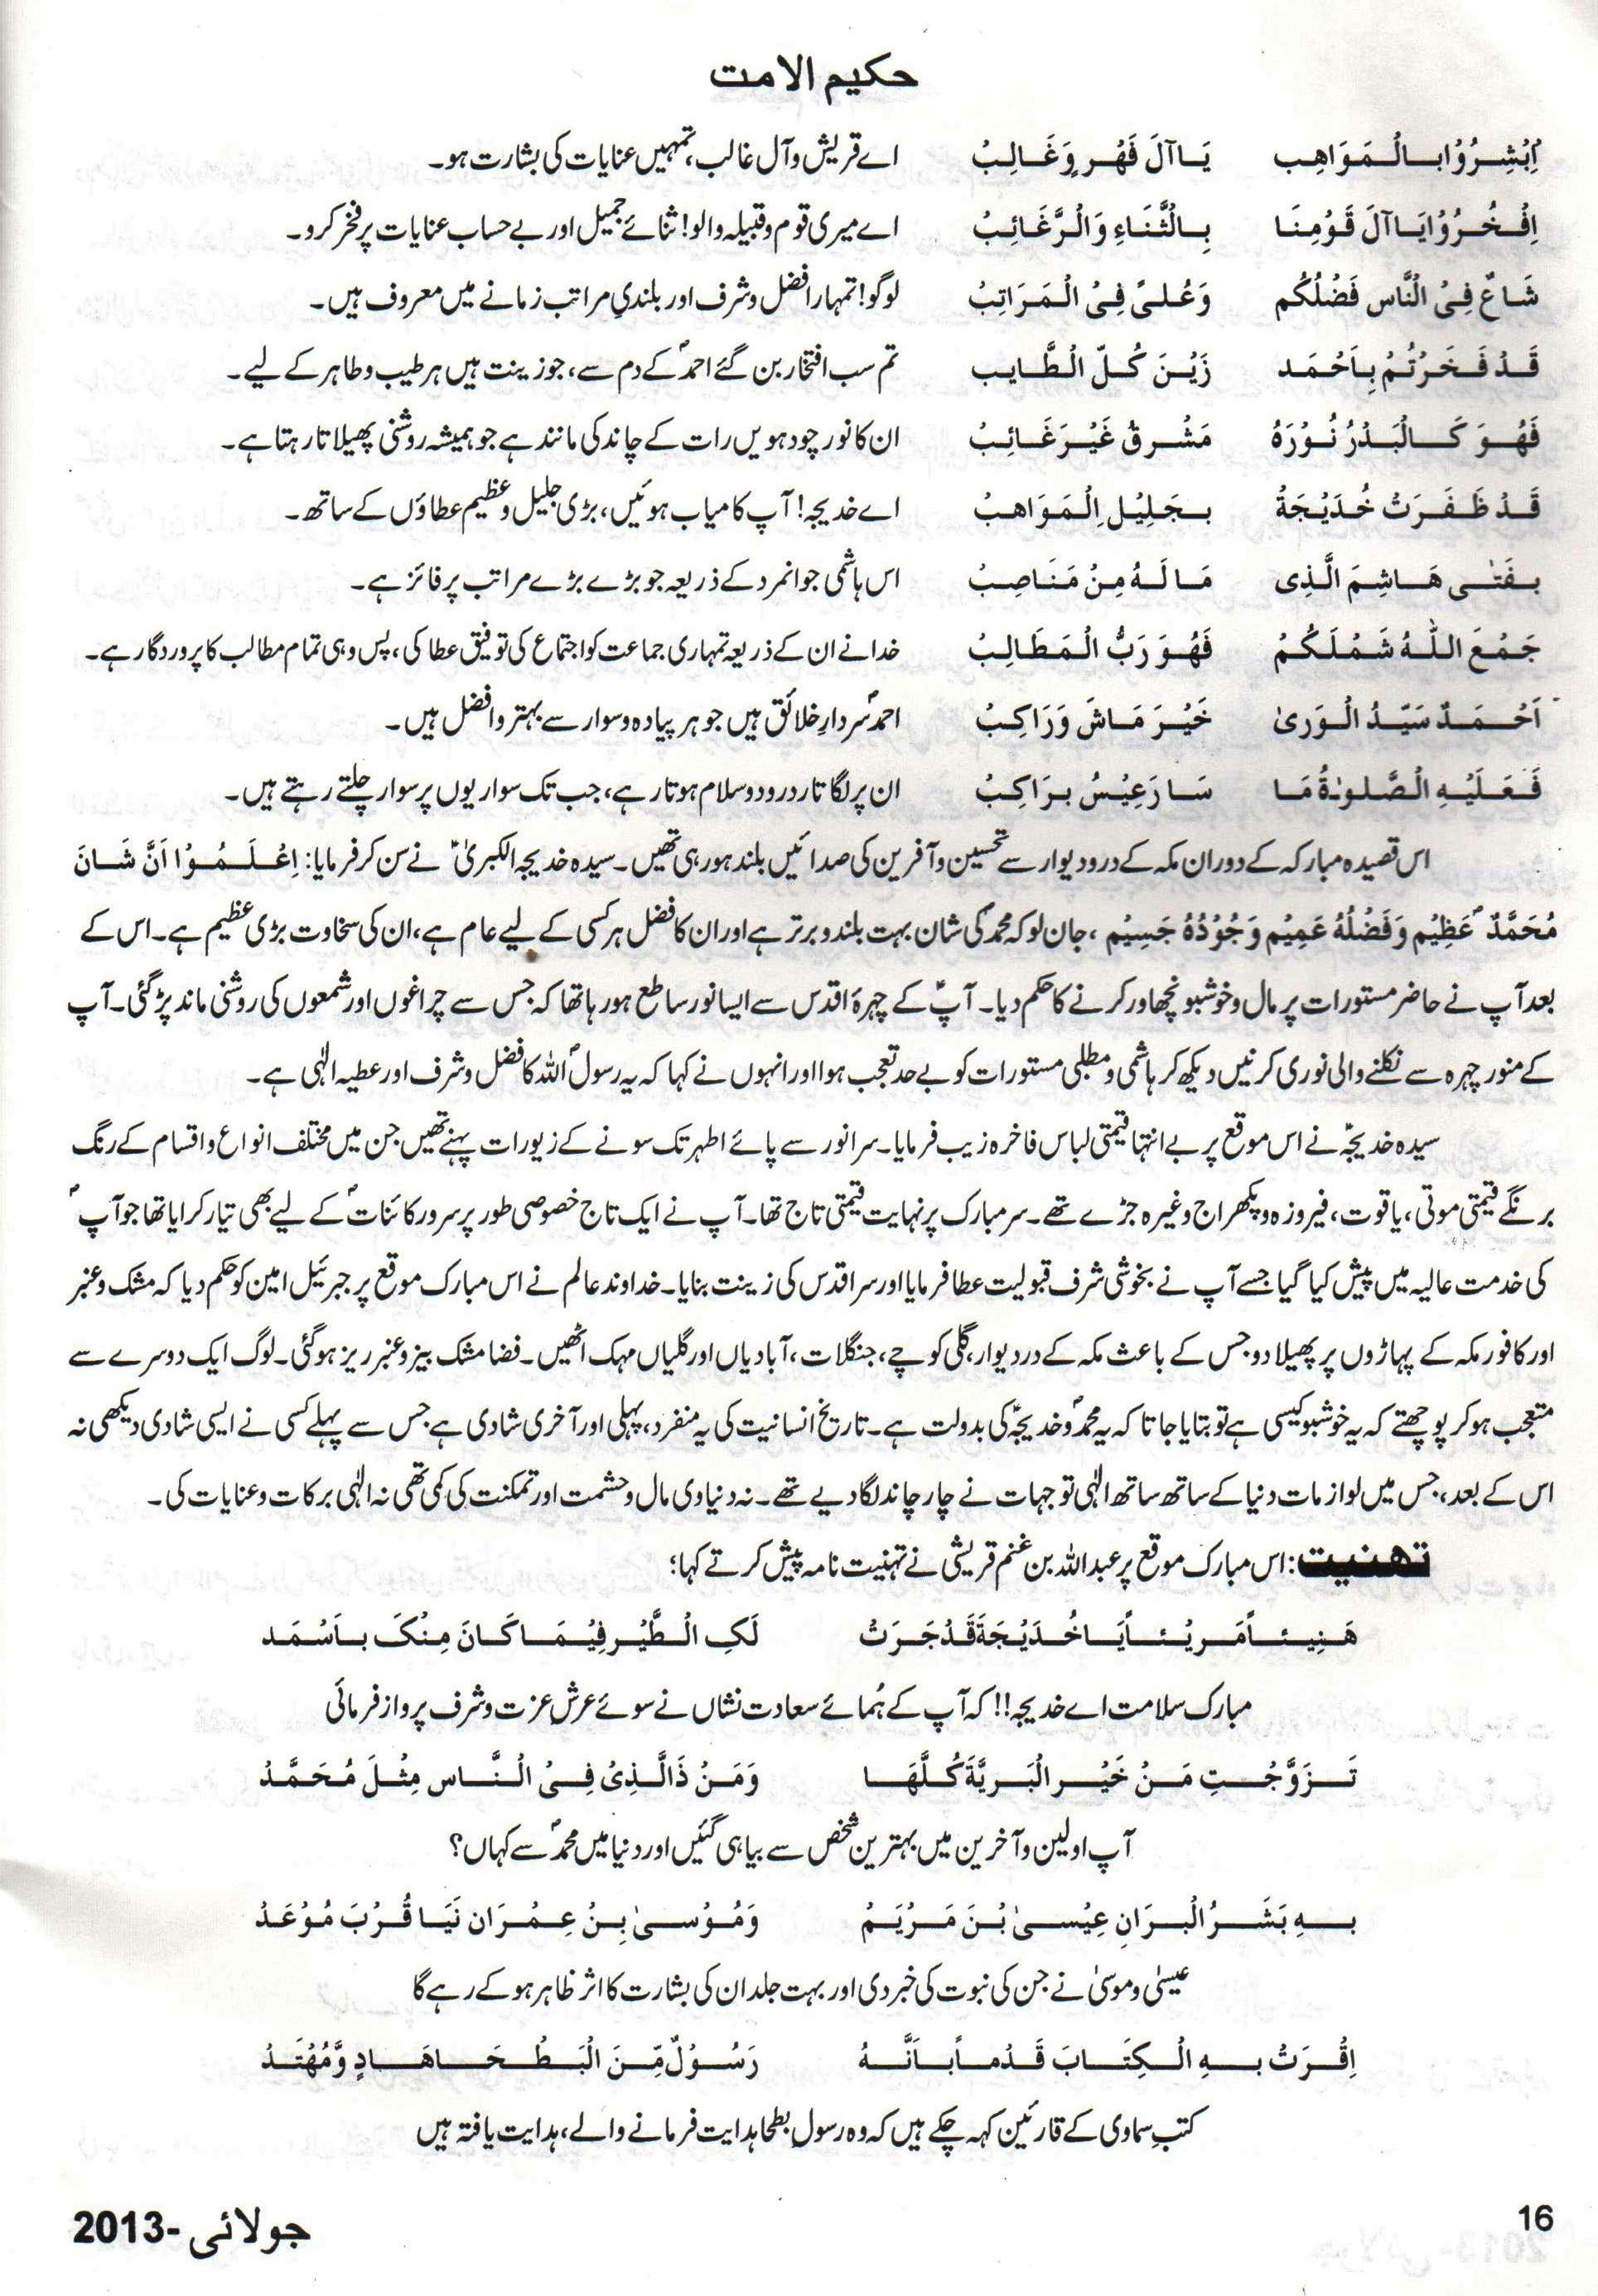 حکیم الامت
اَبْشِرُوْا بِالْمَوَاهِبِ یَا آلَ فَهْرٍ وَغَالِبْ اے قریش و آل غالب، تمہیں عنایات کی بشارت ہو۔
اِفْخُرُوْا یَا آلَ قَوْمِنَا بِالْثَّنَاءِ وَالْرَّغَائِبْ اے میری قوم و قبیلہ والو! ثنائے جمیل اور بے حساب عنایات پر فخر کرو۔
شَاعٌ فِیْ الْنَّاسِ فَضْلُکُم وَعُلیً فِیْ الْمَرَاتِبْ لوگو! تمہارا فضل و شرف اور بلندیِ مراتب زمانے میں معروف ہیں۔
قَدْ فَخَرْتُمْ بِاَحْمَد زَیْنَ کُلِّ الْطَّایب تم سب افتخار بن گئے احمدؐ کے دم سے، جو زینت ہیں ہر طیب و طاہر کے لیے۔
فَهُوَ کَالْبَدْرُ نُوْرَهُ مَشْرِقْ غَیْرَ غَائِبْ ان کا نور چودہویں رات کے چاند کی مانند ہے جو ہمیشہ روشنی پھیلاتا رہتا ہے۔
قَدْ ظَفَرَتْ خُدَیْجَةُ بِجَلِیْلِ الْمَوَاهِبْ اے خدیجہ! آپ کامیاب ہوئیں، بڑی جلیل و عظیم عطاؤں کے ساتھ۔
بِفَتٰی هَاشِمَ الَّذِی مَا لَهُ مِنْ مَنَاصِبْ اس ہاشمی جوانمرد کے ذریعہ جو بڑے بڑے مراتب پر فائز ہے۔
جَمْعَ اللّٰهُ شَمْلَکُمْ فَهُوَ رَبُّ الْمَطَالِبْ خدا نے ان کے ذریعہ تمہاری جماعت کو اجتماع کی توفیق عطا کی، پس وہی تمام مطالب کا پروردگار ہے۔
اَحْمَدٌ سَیِّدُ الْوَریٰ خَیْرَ مَاشَ وَرَاکِبْ احمدؐ سردارِ خلائق ہیں جو ہر پیادہ و سوار سے بہتر و افضل ہیں۔
فَعَلَیْهِ الْصَّلوٰةُ مَا سَارَ عِیْسُ بِرَاکِبْ ان پر لگاتار درود و سلام ہوتا رہے، جب تک سواریوں پر سوار چلتے رہتے ہیں۔
اس قصیدہ مبارکہ کے دوران مکہ کے در و دیوار سے تحسین و آفرین کی صدائیں بلند ہو رہی تھیں۔ سیدہ خدیجہ الکبریٰؑ نے سن کر فرمایا: اِعْلَمُوْا اَنَّ شَانَ
مُحَمَّدٌؐ عَظِیْم وَفَضْلُهُ عَمِیْم وَجُوْدُهُ جَسِیْم، جان لو کہ محمدؐ کی شان بہت بلند و برتر ہے اور ان کا فضل ہر کسی کے لیے عام ہے، ان کی سخاوت بڑی عظیم ہے۔ اس کے
بعد آپ نے حاضر مستورات پر مال و خوشبو نچھاور کرنے کا حکم دیا۔ آپؑ کے چہرۂ اقدس سے ایسا نور ساطع ہو رہا تھا کہ جس سے چراغوں اور شمعوں کی روشنی ماند پڑ گئی۔ آپ
کے منور چہرہ سے نکلنے والی نوری کرنیں دیکھ کر ہاشمی و مطلبی مستورات کو بے حد تعجب ہوا اور انہوں نے کہا کہ یہ رسولؐ اللہ کا فضل و شرف اور عطیہ الٰہی ہے۔
سیدہ خدیجہؑ نے اس موقع پر بے انتہا قیمتی لباس فاخرہ زیب فرمایا۔ سر انور سے پائے اطہر تک سونے کے زیورات پہنے تھیں جن میں مختلف انواع و اقسام کے رنگ
برنگے قیمتی موتی، یاقوت، فیروزہ و پکھراج وغیرہ جڑے تھے۔ سر مبارک پر نہایت قیمتی تاج تھا۔ آپ نے ایک تاج خصوصی طور پر سرور کائناتؐ کے لیے بھی تیار کرایا تھا جو آپؐ
کی خدمت عالیہ میں پیش کیا گیا جسے آپ نے بخوشی شرف قبولیت عطا فرمایا اور سر اقدس کی زینت بنایا۔ خداوند عالم نے اس مبارک موقع پر جبرئیل امین کو حکم دیا کہ مشک و عنبر
اور کافور مکہ کے پہاڑوں پر پھیلا دو جس کے باعث مکہ کے در دیوار، گلی کوچے، جنگلات، آبادیاں اور گلیاں مہک اٹھیں۔ فضا مشک بیز و عنبر ریز ہو گئی۔ لوگ ایک دوسرے سے
متعجب ہو کر پوچھتے کہ یہ خوشبو کیسی ہے تو بتایا جاتا کہ یہ محمدؐ و خدیجہؑ کی بدولت ہے۔ تاریخ انسانیت کی یہ منفرد، پہلی اور آخری شادی ہے جس سے پہلے کسی نے ایسی شادی دیکھی نہ
اس کے بعد، جس میں لوازمات دنیا کے ساتھ ساتھ الٰہی توجہات نے چار چاند لگا دیے تھے۔ نہ دنیاوی مال و حشمت اور تمکنت کی کمی تھی نہ الٰہی برکات و عنایات کی۔
تہنیت: اس مبارک موقع پر عبداللہ بن غنم قریشی نے تہنیت نامہ پیش کرتے کہا؛
هَنِیئاً مَرِیْئاً یَا خُدَیْجَةَ قَدْ جَرَتْ لَکِ الْطَّیْرِ فِیْمَا کَانَ مِنْکَ بِاَسْمَد
مبارک سلامت اے خدیجہ!! کہ آپ کے ہُمائے سعادت نشاں نے سوئے عرشِ عزت و شرف پرواز فرمائی
تَزَوَّجْتِ مَنْ خَیْرِ الْبَرِیَّةَ کُلَّهَا وَمَنْ ذَالَّذِیْ فِیْ الْنَّاسِ مِثْلَ مُحَمَّدْ
آپ اولین و آخرین میں بہترین شخص سے بیاہی گئیں اور دنیا میں محمدؐ سے کہاں؟
بِهِ بَشَرُ الْبِرَانِ عِیْسیٰ بْنَ مَرْیَمْ وَمُوْسیٰ بِنْ عِمْرَان نَیَا قُرْبَ مُوْعَدْ
عیسیٰ و موسیٰ نے جن کی نبوت کی خبر دی اور بہت جلد ان کی بشارت کا اثر ظاہر ہو کے رہے گا
اِقْرَتْ بِهِ الْکِتَابَ قَدْماً بِاَنَّهُ رَسُوْلٌ مِّنَ الْبَطْحَا هَادٍ وَّمُهْتَدْ
کتبِ سماوی کے قارئین کہہ چکے ہیں کہ وہ رسولِ بطحا ہدایت فرمانے والے، ہدایت یافتہ ہیں
16 جولائی -2013